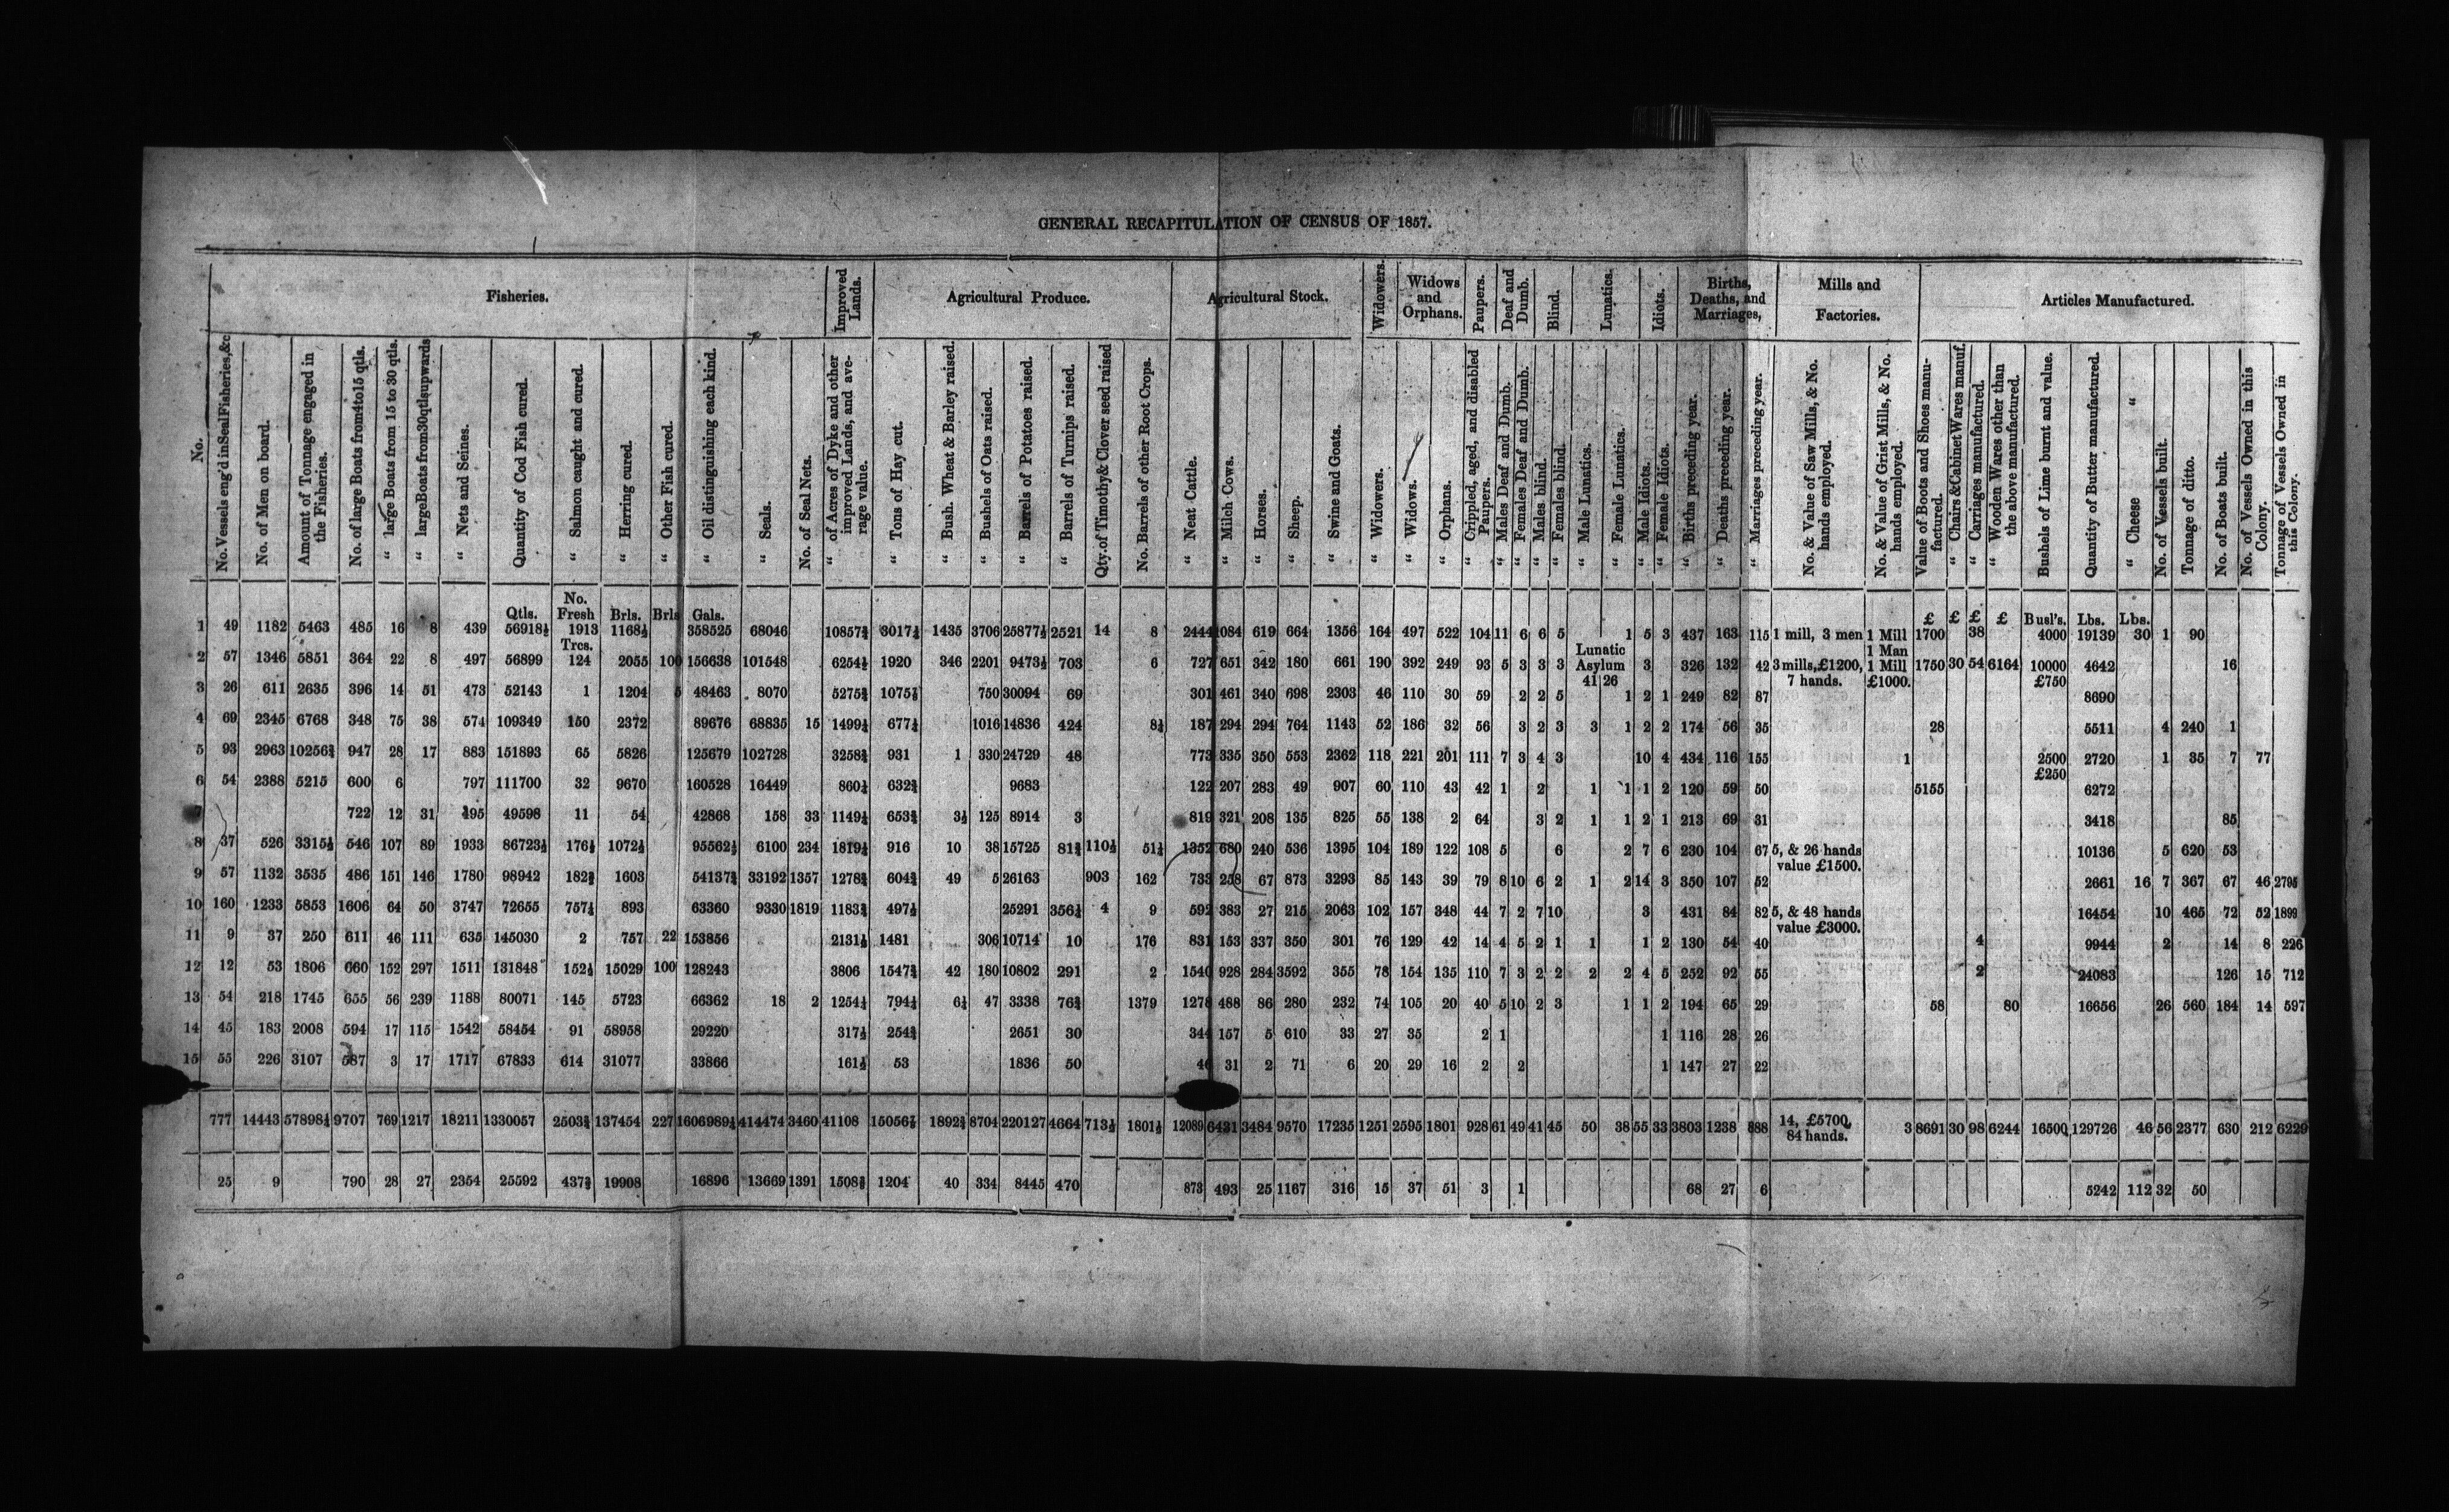 GENERAL RECAPITULATION OF CENSUS OF 1857.
Fisheries. Improved Lands. Agricultural Produce. Agricultural Stock. Widowers. Widows and Orphans. Paupers. Deaf and Dumb. Blind. Lunatics. Idiots. Births, Deaths, and Marriages, Mills and Factories. Articles Manufactured.
No.
No. Vessels eng'd in Seal Fisheries, &c
No. of Men on board.
Amount of Tonnage engaged in the Fisheries.
No. of large Boats from 4 to 15 qtls.
“ large Boats from 15 to 30 qtls.
“ large Boats from 30 qtls upwards
“ Nets and Seines.
Quantity of Cod Fish cured.
“ Salmon caught and cured.
“ Herring cured.
“ Other Fish cured.
“ Oil distinguishing each kind.
“ Seals.
No. of Seal Nets.
“ of Acres of Dyke and other improved Lands, and average value.
“ Tons of Hay cut.
“ Bush. Wheat & Barley raised.
“ Bushels of Oats raised.
“ Barrels of Potatoes raised.
“ Barrels of Turnips raised.
Qty. of Timothy & Clover seed raised
No. Barrels of other Root Crops.
“ Neat Cattle.
“ Milch Cows.
“ Horses.
“ Sheep.
“ Swine and Goats.
“ Widowers.
“ Widows.
“ Orphans.
“ Crippled, aged, and disabled Paupers.
“ Males Deaf and Dumb.
“ Females Deaf and Dumb.
“ Males blind.
“ Females blind.
“ Male Lunatics.
“ Female Lunatics.
“ Male Idiots.
“ Female Idiots.
“ Births preceding year.
“ Deaths preceding year.
“ Marriages preceding year.
No. & Value of Saw Mills, & No. hands employed.
No. & Value of Grist Mills, & No. hands employed.
Value of Boots and Shoes manufactured.
“ Chairs & Cabinet Wares manuf.
“ Carriages manufactured.
“ Wooden Wares other than the above manufactured.
Bushels of Lime burnt and value.
Quantity of Butter manufactured.
“ Cheese “
No. of Vessels built.
Tonnage of ditto.
No. of Boats built.
No. of Vessels Owned in this Colony.
Tonnage of Vessels Owned in this Colony.
Qtls. No. Fresh Brls. Brls Gals. £ £ £ £ Busl's. Lbs. Lbs.
1 49 1182 5463 485 16 8 439 56918½ 1913 1168½ 358525 68046 10857¾ 3017¼ 1435 3706 25877½ 2521 14 8 2444 1084 619 664 1356 164 497 522 104 11 6 6 5 1 5 3 437 163 115 1 mill, 3 men 1 Mill 1700 38 4000 19139 30 1 90
Trcs. Lunatic 1 Man
2 57 1346 5851 364 22 8 497 56899 124 2055 100 156638 101548 6254½ 1920 346 2201 9473½ 703 6 727 651 342 180 661 190 392 249 93 5 3 3 3 Asylum 3 326 132 42 3 mills, £1200, 1 Mill 1750 30 54 6164 10000 4642 16
41 26 7 hands. £1000. £750
3 26 611 2635 396 14 51 473 52143 1 1204 5 48463 8070 5275¾ 1075¾ 750 30094 69 301 461 340 698 2303 46 110 30 59 2 2 5 1 2 1 249 82 87 8690
4 69 2345 6768 348 75 38 574 109349 150 2372 89676 68835 15 1499¼ 677¼ 1016 14836 424 8½ 187 294 294 764 1143 52 186 32 56 3 2 3 3 1 2 2 174 56 35 28 5511 4 240 1
5 93 2963 10256¾ 947 28 17 883 151893 65 5826 125679 102728 3258¾ 931 1 330 24729 48 773 335 350 553 2362 118 221 201 111 7 3 4 3 10 4 434 116 155 1 2500 2720 1 35 7 77
£250
6 54 2388 5215 600 6 797 111700 32 9670 160528 16449 860¼ 632¾ 9683 122 207 283 49 907 60 110 43 42 1 2 1 1 1 2 120 59 50 5155 6272
7 722 12 31 495 49598 11 54 42868 158 33 1149¼ 653¾ 3½ 125 8914 3 819 321 208 135 825 55 138 2 64 3 2 1 1 2 1 213 69 31 3418 85
8 37 526 3315½ 546 107 89 1933 86723½ 176½ 1072½ 95562½ 6100 234 1819¼ 916 10 38 15725 81¾ 110½ 51½ 1352 680 240 536 1395 104 189 122 108 5 6 2 7 6 230 104 67 5, & 26 hands 10136 5 620 53
value £1500.
9 57 1132 3535 486 151 146 1780 98942 182¾ 1603 54137¾ 33192 1357 1278¾ 604¾ 49 5 26163 903 162 733 258 67 873 3293 85 143 39 79 8 10 6 2 1 2 14 3 350 107 52 2661 16 7 367 67 46 2795
10 160 1233 5853 1606 64 50 3747 72655 757¼ 893 63360 9330 1819 1183¾ 497½ 25291 356¼ 4 9 592 383 27 215 2063 102 157 348 44 7 2 7 10 3 431 84 82 5, & 48 hands 16454 10 465 72 52 1899
value £3000.
11 9 37 250 611 46 111 635 145030 2 757 22 153856 2131½ 1481 306 10714 10 176 831 153 337 350 301 76 129 42 14 4 5 2 1 1 1 2 130 54 40 4 9944 2 14 8 226
12 12 53 1806 660 152 297 1511 131848 152½ 15029 100 128243 3806 1547¾ 42 180 10802 291 2 1540 928 284 3592 355 78 154 135 110 7 3 2 2 2 2 4 5 252 92 55 2 24083 126 15 712
13 54 218 1745 655 56 239 1188 80071 145 5723 66362 18 2 1254¼ 794¼ 6½ 47 3338 76¾ 1379 1278 488 86 280 232 74 105 20 40 5 10 2 3 1 1 2 194 65 29 58 80 16656 26 560 184 14 597
14 45 183 2008 594 17 115 1542 58454 91 58958 29220 317½ 254¾ 2651 30 344 157 5 610 33 27 35 2 1 1 116 28 26
15 55 226 3107 587 3 17 1717 67833 614 31077 33866 161½ 53 1836 50 46 31 2 71 6 20 29 16 2 2 1 147 27 22
777 14443 57898¼ 9707 769 1217 18211 1330057 2503¾ 137454 227 1606989¼ 414474 3460 41108 15056¾ 1892¾ 8704 220127 4664 713½ 1801½ 12089 6431 3484 9570 17235 1251 2595 1801 928 61 49 41 45 50 38 55 33 3803 1238 888 14, £5700, 3 8691 30 98 6244 16500 129726 46 56 2377 630 212 6229
84 hands.
25 9 790 28 27 2354 25592 437¾ 19908 16896 13669 1391 1508¾ 1204 40 334 8445 470 873 493 25 1167 316 15 37 51 3 1 68 27 6 5242 112 32 50